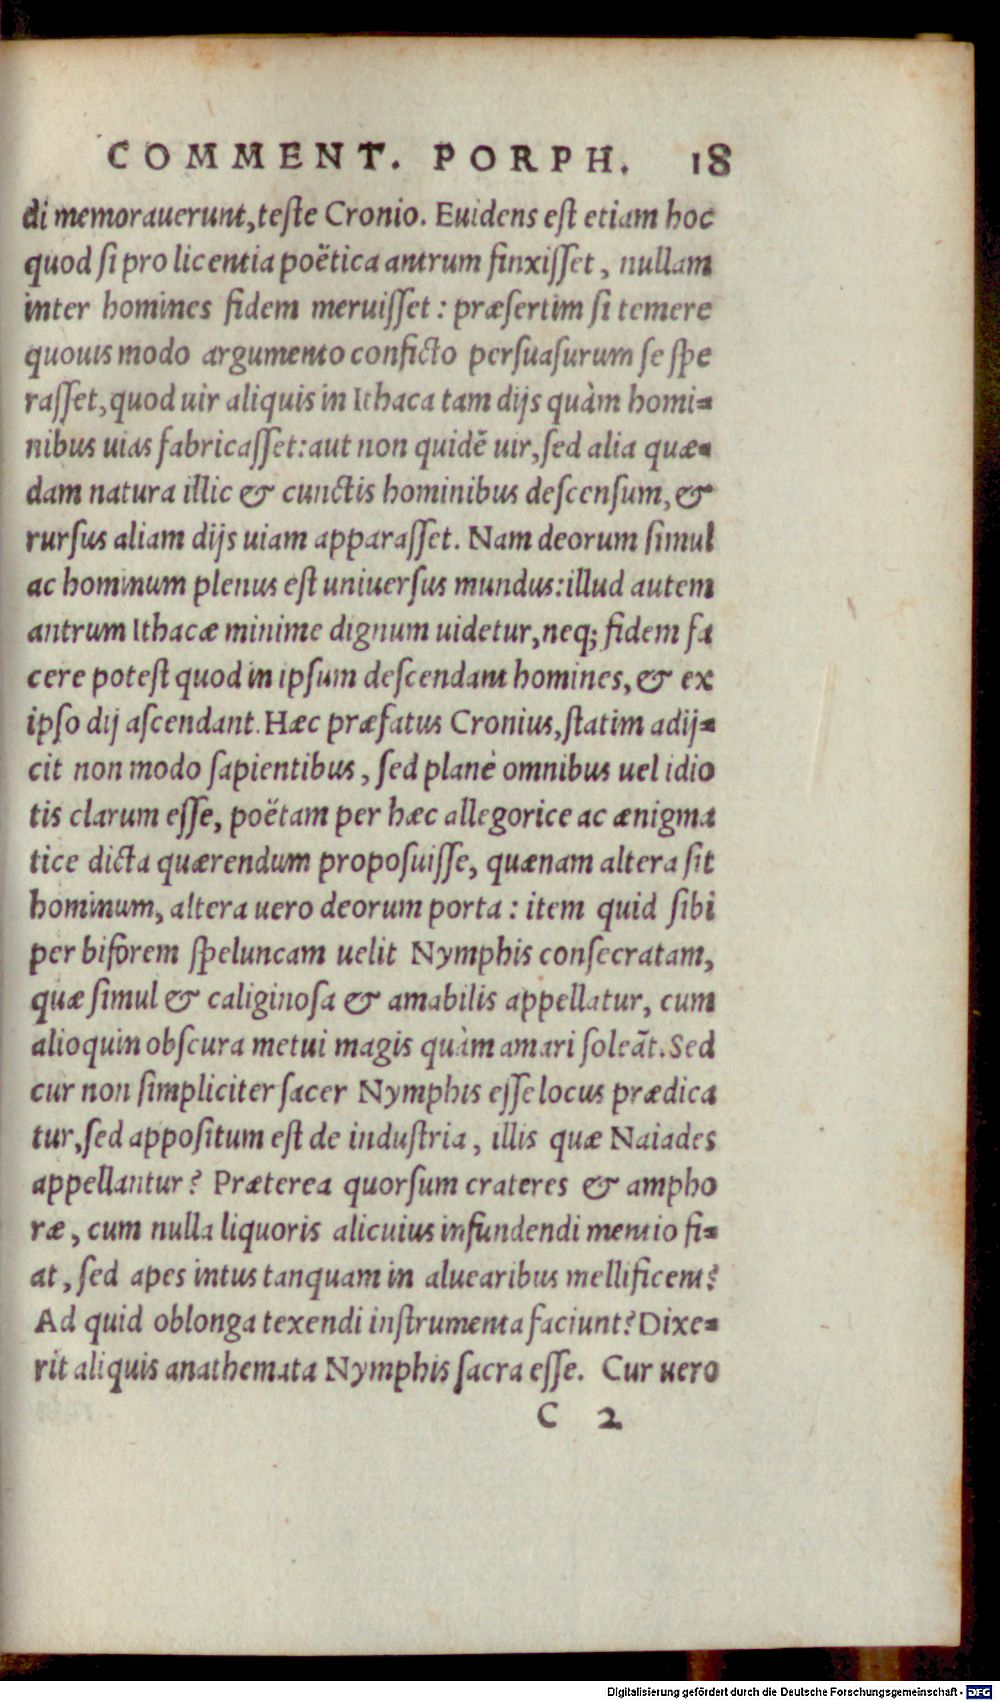 COMMENT. PORPH. 18
di memorauerunt, teste Cronio. Euidens est etiam hoc
quod si pro licentia poëtica antrum finxisset, nullam
inter homines fidem meruisset: præsertim si temere
quouis modo argumento conficto persuasurum se spe
rasset, quod uir aliquis in Ithaca tam dijs quàm homi=
nibus uias fabricasset: aut non quidē uir, sed alia quæ=
dam natura illic & cunctis hominibus descensum, &
rursus aliam dijs uiam apparasset. Nam deorum simul
ac hominum plenus est uniuersus mundus: illud autem
antrum Ithacæ minime dignum uidetur, neq; fidem fa
cere potest quod in ipsum descendant homines, & ex
ipso dij ascendant. Hæc præfatus Cronius, statim adij=
cit non modo sapientibus, sed planè omnibus uel idio
tis clarum esse, poëtam per hæc allegorice ac ænigma
tice dicta quærendum proposuisse, quænam altera sit
hominum, altera uero deorum porta: item quid sibi
per biforem speluncam uelit Nymphis consecratam,
quæ simul & caliginosa & amabilis appellatur, cum
alioquin obscura metui magis quàm amari soleāt. Sed
cur non simpliciter sacer Nymphis esse locus prædica
tur, sed appositum est de industria, illis quæ Naiades
appellantur? Præterea quorsum crateres & ampho
ræ, cum nulla liquoris alicuius infundendi mentio fi=
at, sed apes intus tanquam in aluearibus mellificent?
Ad quid oblonga texendi instrumenta faciunt? Dixe=
rit aliquis anathemata Nymphis sacra esse. Cur uero
C 2
Digitalisierung gefördert durch die Deutsche Forschungsgemeinschaft - DFG